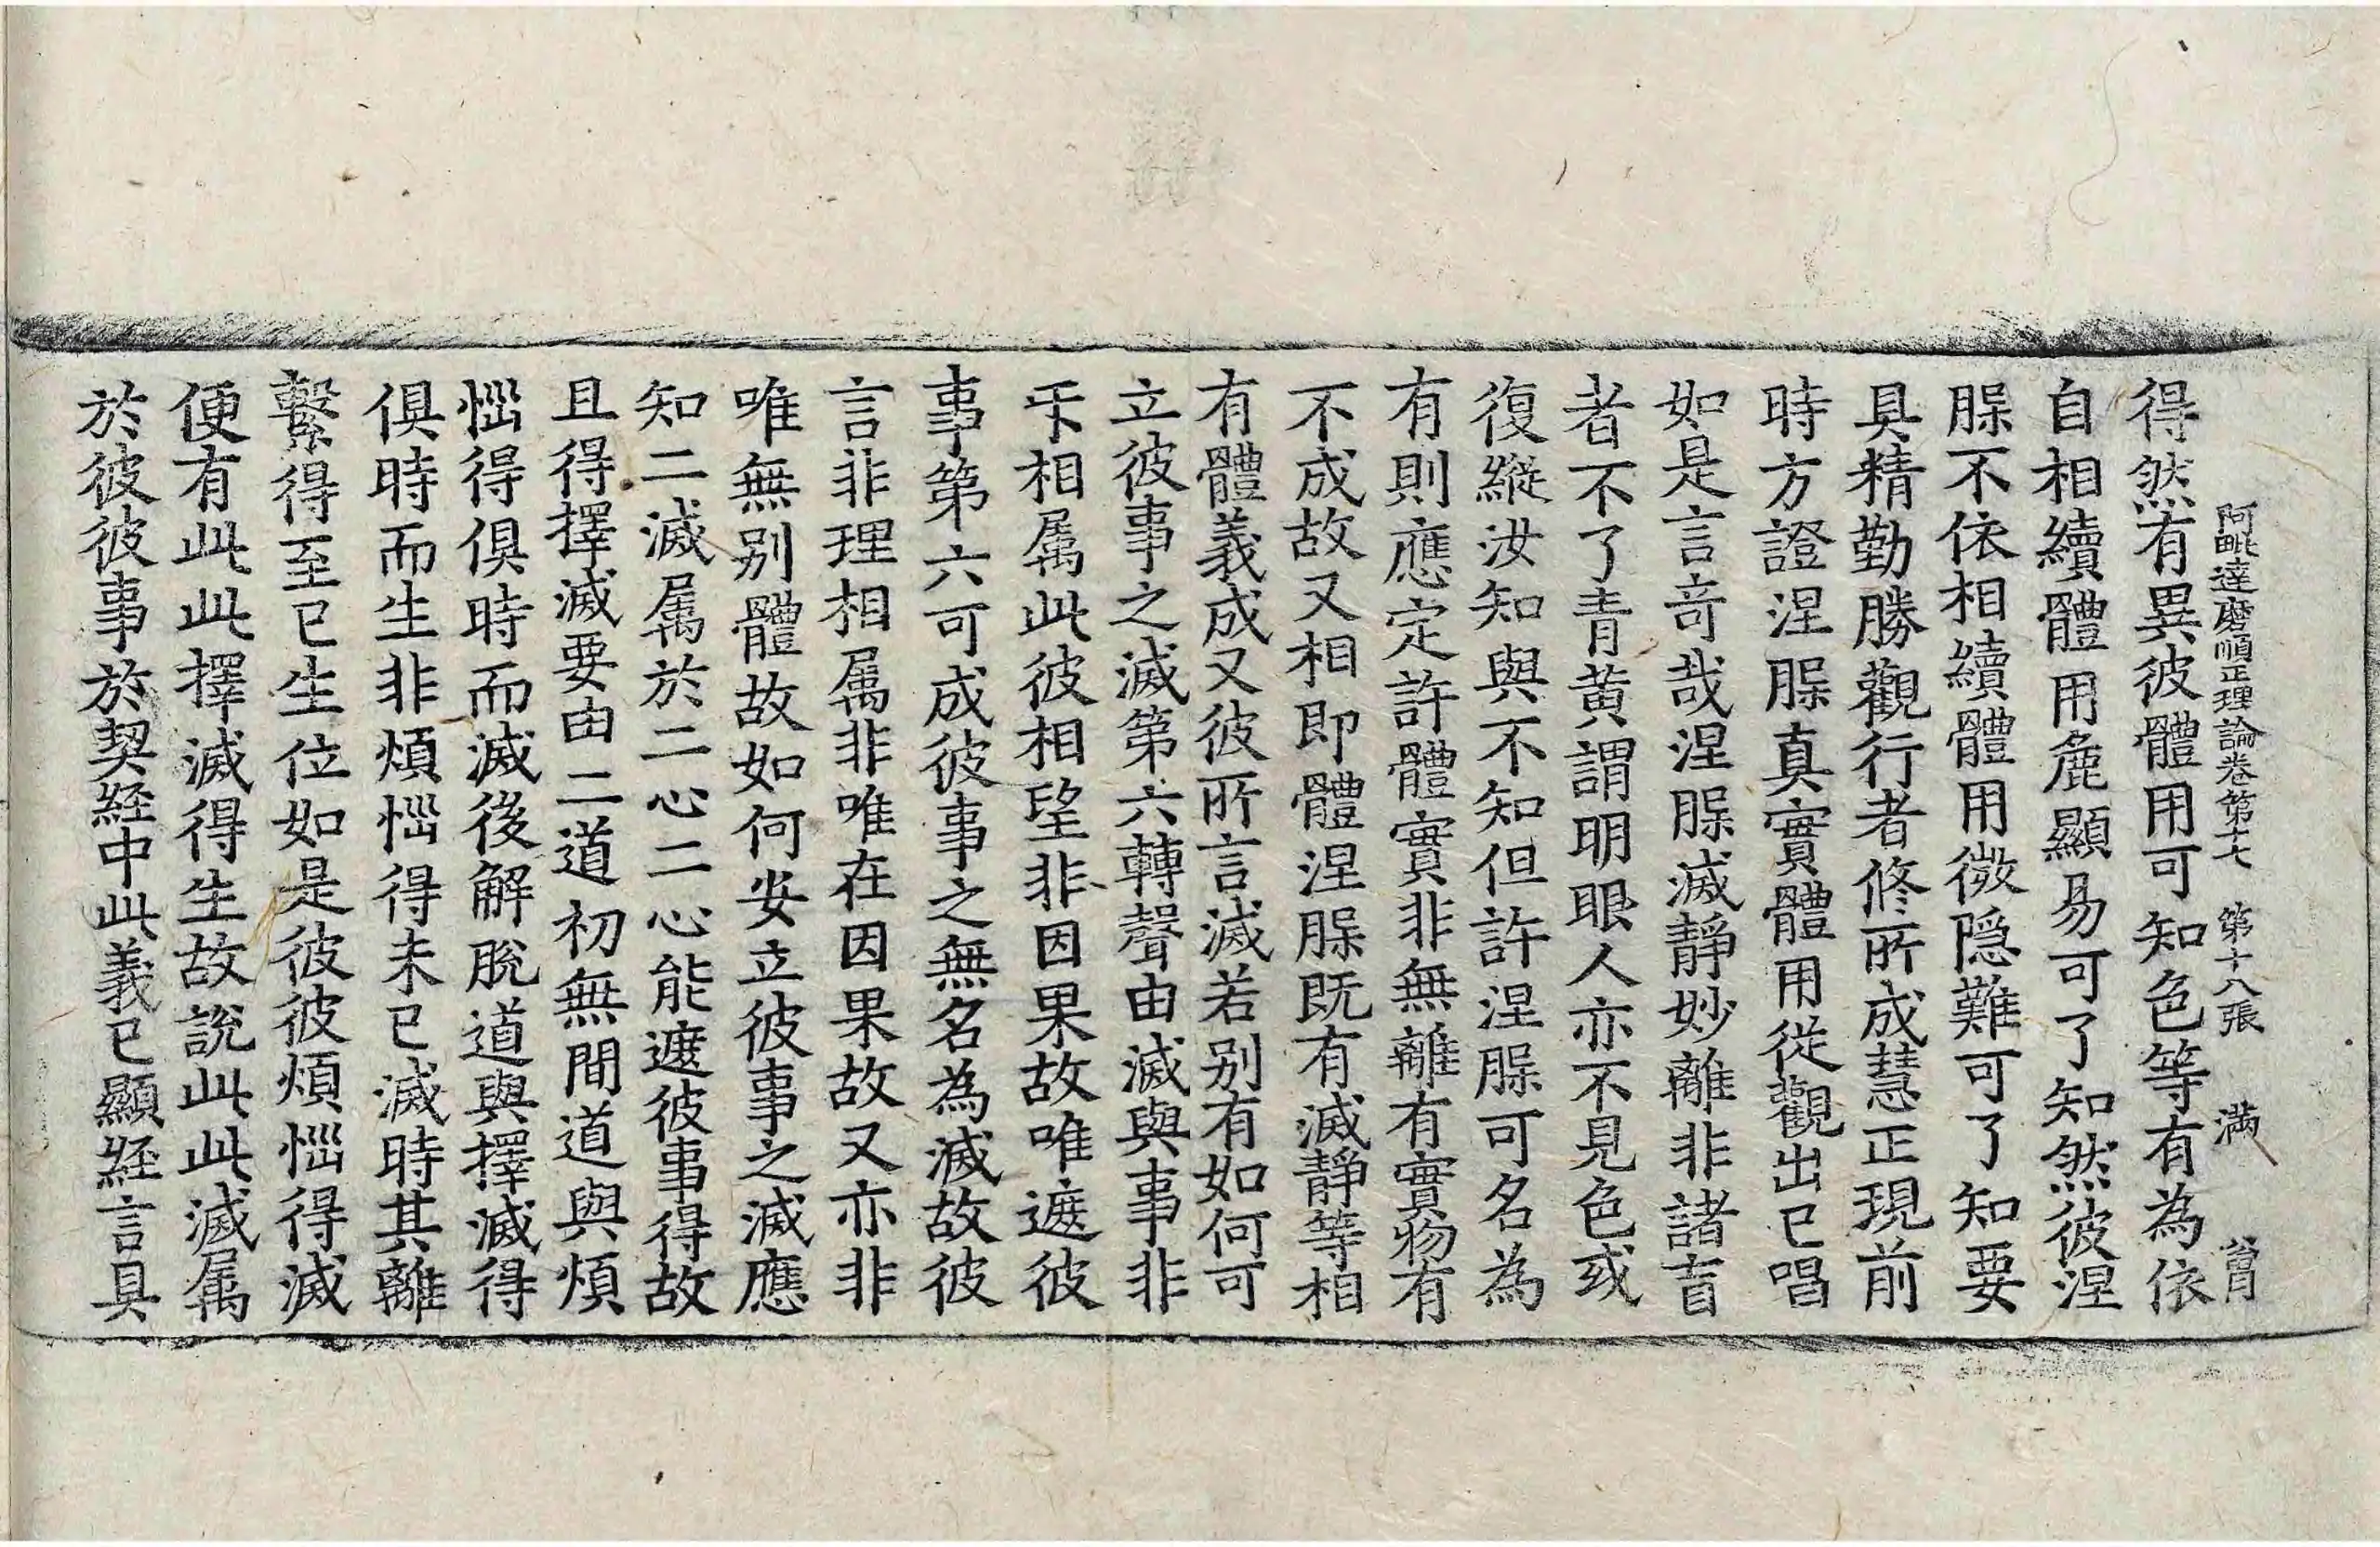 阿毗達磨順正理論卷第十七 第十八張 滿
得然有異彼體用可知色等有為依
自相續體用麁顯易可了知然彼涅
腂不依相續體用微隱難可了知要
具精勤勝觀行者修所成慧正現前
時方證涅腂真實體用從觀出已唱
如是言奇哉涅腂滅靜妙離非諸盲
者不了青黄謂明眼人亦不見色或
復縱汝知與不知但許涅腂可名為
有則應定許體實非無離有實物有
不成故又相即體涅腂既有滅靜等相
有體義成又彼所言滅若别有如何可
立彼事之滅第六轉聲由滅與事非
𠇾相属此彼相望非因果故唯遮彼
事第六可成彼事之無名為滅故彼
言非理相属非唯在因果故又亦非
唯無别體故如何安立彼事之滅應
知二滅属於二心二心能遮彼事得故
且得擇滅要由二道初無間道與煩
惱得俱時而滅後解脫道與擇滅得
俱時而生非煩惱得未已滅時其離
繫得至已生位如是彼彼煩惱得滅
便有此此擇滅得生故說此此滅属
於彼彼事於契經中此義已顯經言具